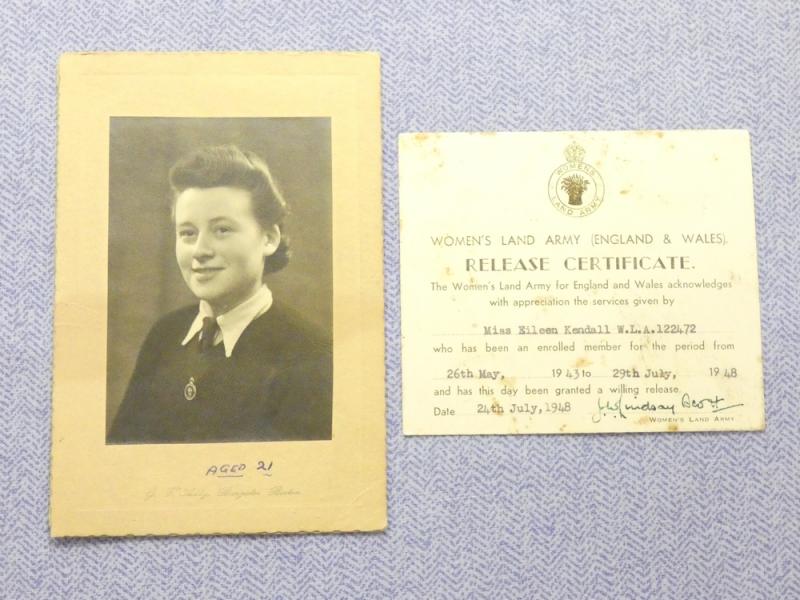 AGED 21
WOMEN'S
LAND ARMY
WOMEN'S LAND ARMY (ENGLAND & WALES).
RELEASE CERTIFICATE.
The Women's Land Army for England and Wales acknowledges
with appreciation the services given by
Miss Eileen Kendall W.L.A.122472
who has been an enrolled member for the period from
26th May, 1943 to 29th July, 1948
and has this day been granted a willing release.
Date 24th July, 1948 Lindsay Scott
WOMEN'S LAND ARMY